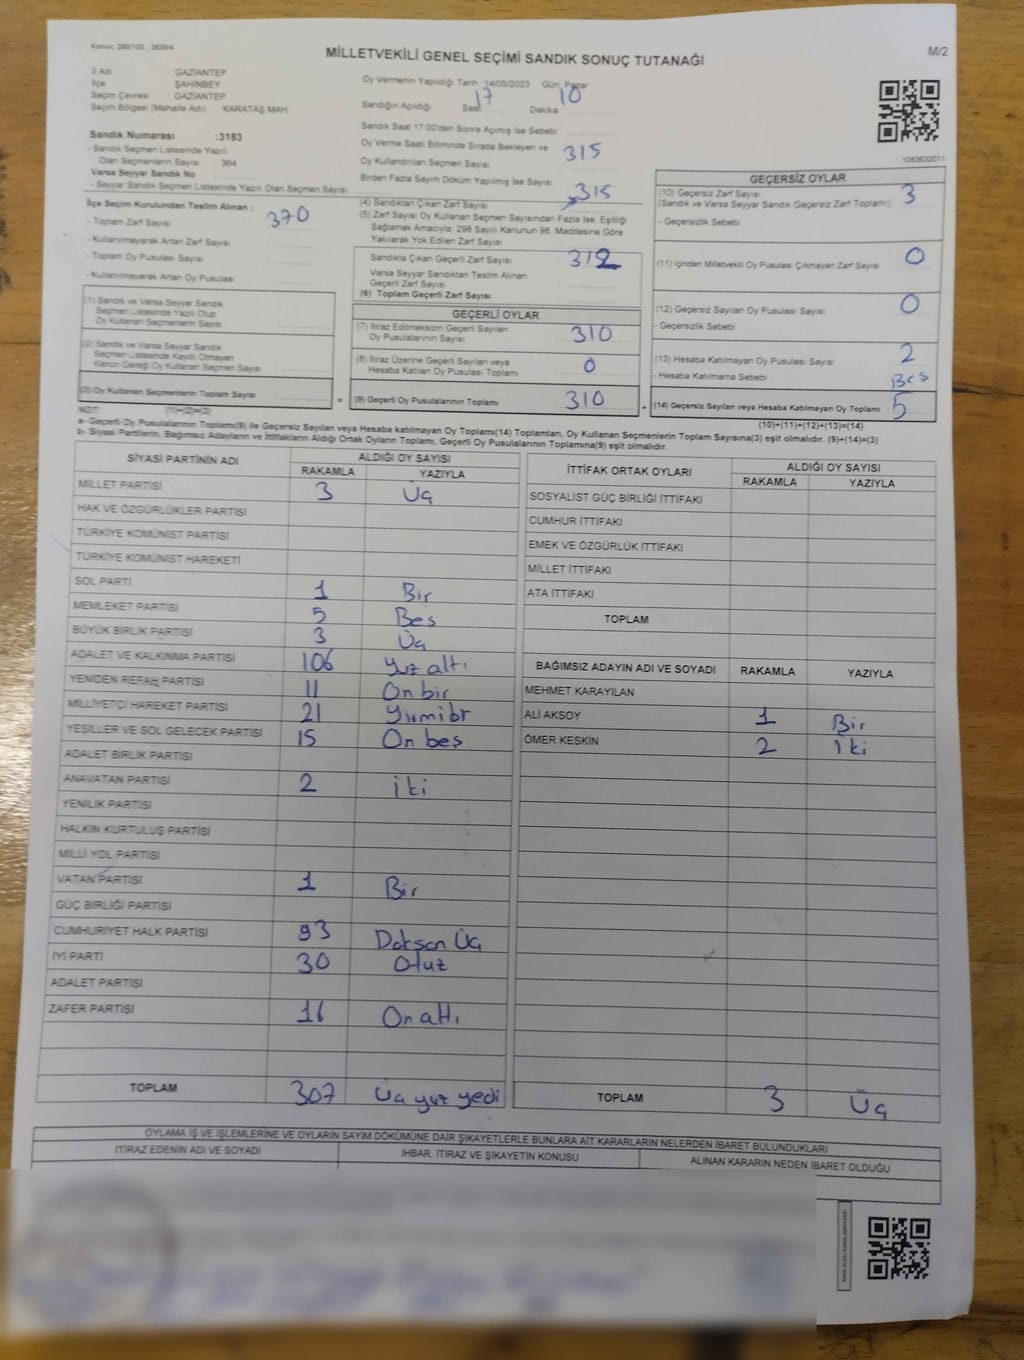 Kanun: 298/105 , 2839/4
MİLLETVEKİLİ GENEL SEÇİMİ SANDIK SONUÇ TUTANAĞI
M/2
İl Adı GAZİANTEP
İlçe ŞAHİNBEY
Seçim Çevresi GAZİANTEP
Seçim Bölgesi (Mahalle Adı) KARATAŞ MAH
Oy Vermenin Yapıldığı Tarih 14/05/2023 Gün Pazar
Sandığın Açıldığı Saat 17 Dakika 10
Sandık Saat 17:00'den Sonra Açımış İse Sebebi
Oy Verme Saati Bitiminde Sırada Bekleyen ve
Oy Kullandırılan Seçmen Sayısı 315
Birden Fazla Sayım Döküm Yapılmış İse Sayısı
1083632011
Sandık Numarası :3183
- Sandık Seçmen Listesinde Yazılı
Olan Seçmenlerin Sayısı 364
Varsa Seyyar Sandık No
- Seyyar Sandık Seçmen Listesinde Yazılı Olan Seçmen Sayısı
İlçe Seçim Kurulundan Teslim Alınan ;
- Toplam Zarf Sayısı 370
- Kullanılmayarak Artan Zarf Sayısı
- Toplam Oy Pusulası Sayısı
- Kullanılmayarak Artan Oy Pusulası
(1) Sandık ve Varsa Seyyar Sandık
Seçmen Listesinde Yazılı Olup
Oy Kullanan Seçmenlerin Sayısı
(2) Sandık ve Varsa Seyyar Sandık
Seçmen Listesinde Kaydı Olmayan
Kanun Gereği Oy Kullanan Seçmen Sayısı
(3) Oy Kullanan Seçmenlerin Toplam Sayısı
(1)+(2)=(3)
(4) Sandıktan Çıkan Zarf Sayısı 315
(5) Zarf Sayısı Oy Kullanan Seçmen Sayısından Fazla İse, Eşitliği
Sağlamak Amacıyla, 298 Sayılı Kanunun 98. Maddesine Göre
Yakılarak Yok Edilen Zarf Sayısı
Sandıkta Çıkan Geçerli Zarf Sayısı 312
Varsa Seyyar Sandıktan Teslim Alınan
Geçerli Zarf Sayısı
(6) Toplam Geçerli Zarf Sayısı
GEÇERLİ OYLAR
(7) İtiraz Edilmeksizin Geçerli Sayılan
Oy Pusulalarının Sayısı 310
(8) İtiraz Üzerine Geçerli Sayılan veya
Hesaba Katılan Oy Pusulası Toplamı 0
= (9) Geçerli Oy Pusulalarının Toplamı 310
GEÇERSİZ OYLAR
(10) Geçersiz Zarf Sayısı
(Sandık ve Varsa Seyyar Sandık Geçersiz Zarf Toplamı) 3
- Geçersizlik Sebebi
(11) İçinden Milletvekili Oy Pusulası Çıkmayan Zarf Sayısı 0
(12) Geçersiz Sayılan Oy Pusulası Sayısı 0
- Geçersizlik Sebebi
(13) Hesaba Katılmayan Oy Pusulası Sayısı 2
- Hesaba Katılmama Sebebi
+ (14) Geçersiz Sayılan veya Hesaba Katılmayan Oy Toplamı 5
(10)+(11)+(12)+(13)=(14)
NOT:
a- Geçerli Oy Pusulalarının Toplamı(9) ile Geçersiz Sayılan veya Hesaba katılmayan Oy Toplamı(14) Toplamları, Oy Kullanan Seçmenlerin Toplam Sayısına(3) eşit olmalıdır. (9)+(14)=(3)
b- Siyasi Partilerin, Bağımsız Adayların ve İttifakların Aldığı Ortak Oyların Toplamı, Geçerli Oy Pusulalarının Toplamına(9) eşit olmalıdır.
SİYASİ PARTİNİN ADI ALDIĞI OY SAYISI
RAKAMLA YAZIYLA
MİLLET PARTİSİ 3 Üç
HAK VE ÖZGÜRLÜKLER PARTİSİ
TÜRKİYE KOMÜNİST PARTİSİ
TÜRKİYE KOMÜNİST HAREKETİ
SOL PARTİ 1 Bir
MEMLEKET PARTİSİ 5 Beş
BÜYÜK BİRLİK PARTİSİ 3 Üç
ADALET VE KALKINMA PARTİSİ 106 Yüz altı
YENİDEN REFAH PARTİSİ 11 On bir
MİLLİYETÇİ HAREKET PARTİSİ 21
YEŞİLLER VE SOL GELECEK PARTİSİ 15 On beş
ADALET BİRLİK PARTİSİ
ANAVATAN PARTİSİ 2 iki
YENİLİK PARTİSİ
HALKIN KURTULUŞ PARTİSİ
MİLLİ YOL PARTİSİ
VATAN PARTİSİ 1 Bir
GÜÇ BİRLİĞİ PARTİSİ
CUMHURİYET HALK PARTİSİ 93 Doksan Üç
İYİ PARTİ 30 Otuz
ADALET PARTİSİ
ZAFER PARTİSİ 16 On altı
TOPLAM 307 Üç yüz yedi
İTTİFAK ORTAK OYLARI ALDIĞI OY SAYISI
RAKAMLA YAZIYLA
SOSYALİST GÜÇ BİRLİĞİ İTTİFAKI
CUMHUR İTTİFAKI
EMEK VE ÖZGÜRLÜK İTTİFAKI
MİLLET İTTİFAKI
ATA İTTİFAKI
TOPLAM
BAĞIMSIZ ADAYIN ADI VE SOYADI RAKAMLA YAZIYLA
MEHMET KARAYILAN
ALİ AKSOY 1 Bir
ÖMER KESKİN 2 iki
TOPLAM 3 Üç
OYLAMA İŞ VE İŞLEMLERİNE VE OYLARIN SAYIM DÖKÜMÜNE DAİR ŞİKAYETLERLE BUNLARA AİT KARARLARIN NELERDEN İBARET BULUNDUKLARI
İTİRAZ EDENİN ADI VE SOYADI İHBAR, İTİRAZ VE ŞİKAYETİN KONUSU ALINAN KARARIN NEDEN İBARET OLDUĞU